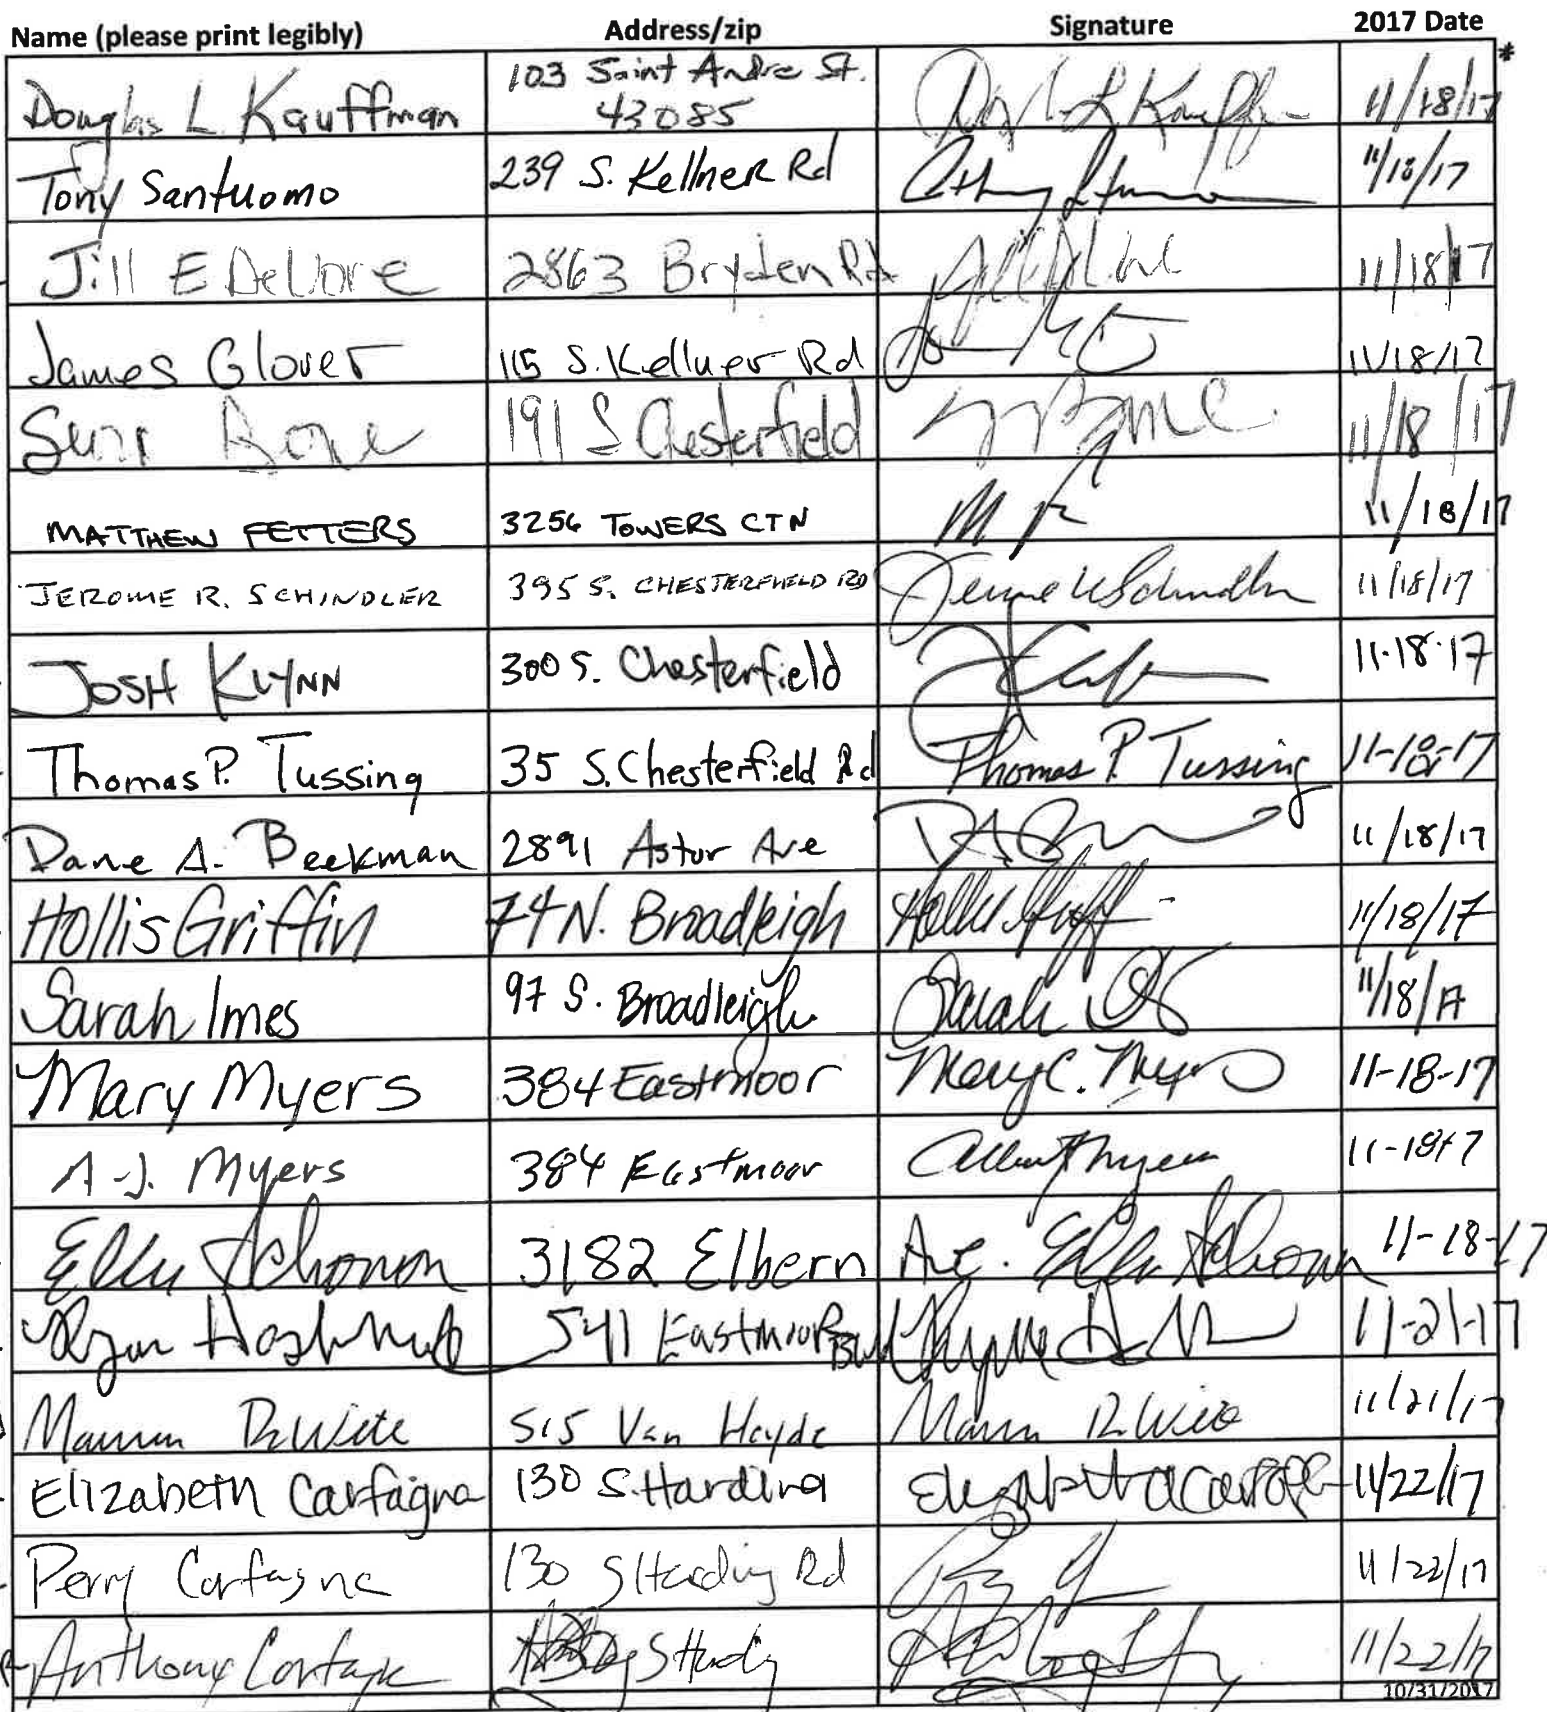 Name (please print legibly) Address/zip Signature 2017 Date
*
Douglas L Kauffman 103 Saint Andre St. 43085 11/18/17
Tony Santuomo 239 S. Kellner Rd 11/18/17
Jill E DeVore 2863 Bryden Rd 11/18/17
James Glover 115 S. Kellner Rd 11/18/17
191 S Chesterfield 11/18/17
MATTHEW FETTERS 3256 TOWERS CT N 11/18/17
JEROME R. SCHINDLER 395 S. CHESTERFIELD RD 11/18/17
JOSH KLYNN 300 S. Chesterfield 11-18-17
Thomas P. Tussing 35 S. Chesterfield Rd Thomas P. Tussing 11-18-17
Dane A. Beekman 2891 Astor Ave 11/18/17
Hollis Griffin 74 N. Broadleigh Hollis Griff 11/18/17
Sarah Imes 97 S. Broadleigh Sarah 11/18/17
Mary Myers 384 Eastmoor Mary C. Myers 11-18-17
A.J. Myers 384 Eastmoor Albert Myers 11-18-17
3182 Elbern Ave. 11-18-17
Ryan 541 Eastmoor Blvd 11-21-17
DeWitt 515 Van Heyde 11/21/17
Elizabeth Carfagna 130 S. Harding 11/22/17
Perry Carfagna 130 S Harding Rd 11/22/17
Anthony Carfagna S Harding 11/22/17
10/31/2017